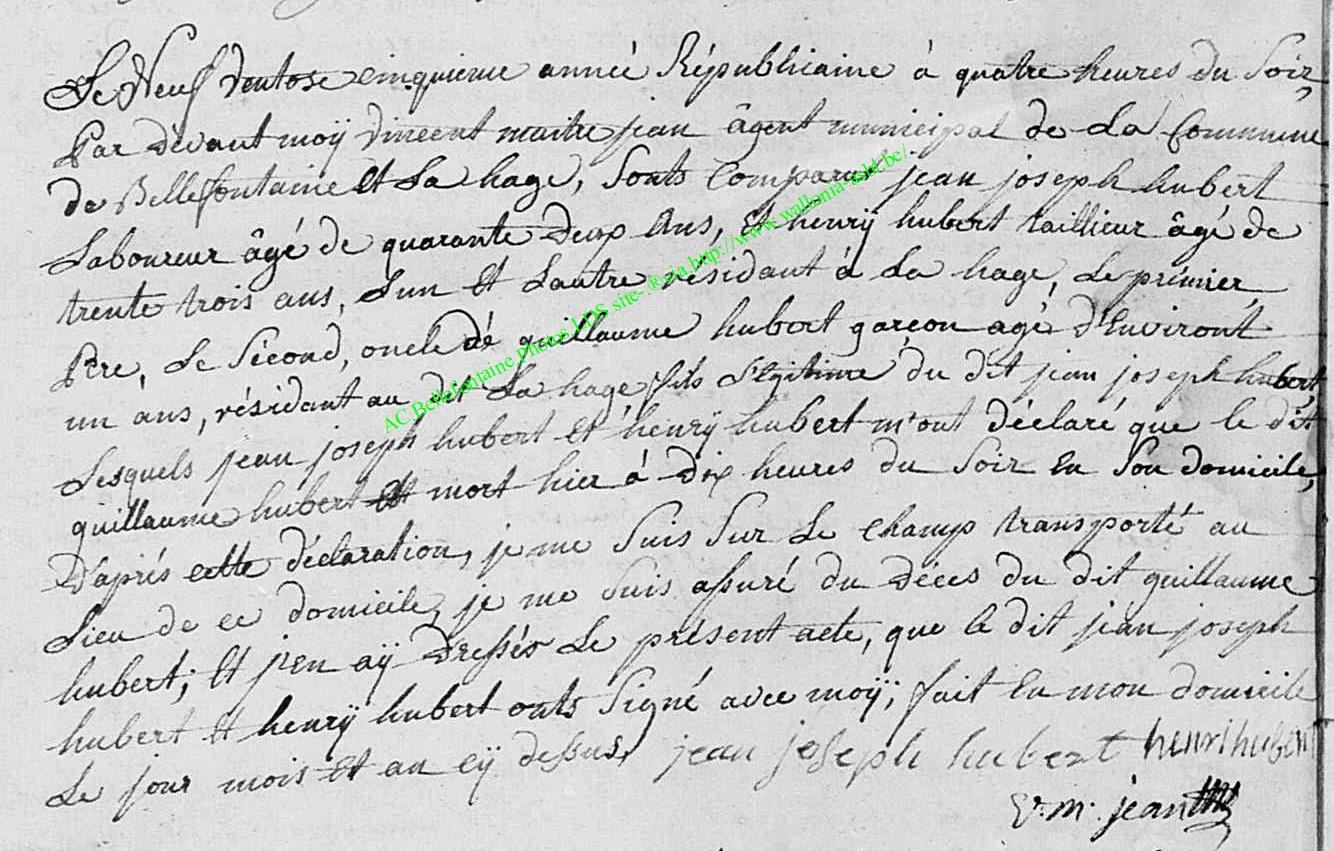 Le Neuf Ventose cinquieme année Républicaine à quatre heures du Soir
Par devant moÿ vincent maitrejean âgent municipal de La Commune
de Bellefontaine et La hage, Sonts Comparut jean joseph hubert
Laboureur âgé de quarante deux Ans, Et henrÿ hubert taillieur âgé de
trente trois ans, L'un Et Lautre résidant à La hage, Le prémier,
Pere, Le Sécond, oncle dé guillaume hubert garçon agé d'Environt
un ans, résidant au dit La hage fils Légitime du dit jean joseph hubert,
Lesquels jean joseph hubert Et hénrÿ hubert m'ont déclaré que le dit
guillaume hubert Est mort hier à dix heures du Soir En Son domicile,
D'aprés cette déclaration, je me Suis Sur Le Champ transporté au
Lieu de ce domicile, je me Suis assuré du Déces du dit guillaume
hubert; Et j'en aÿ Dressés Le présent acte, que le dit jean joseph
hubert Et henrÿ hubert onts Signé avec moÿ; fait En mon domicile
Le jour mois Et an cÿ dessus, jean joseph hubert henri hubert
V. m. jean
AC Bellefontaine Photos LDS site- ®via http://www.wallonia-asbl.be/